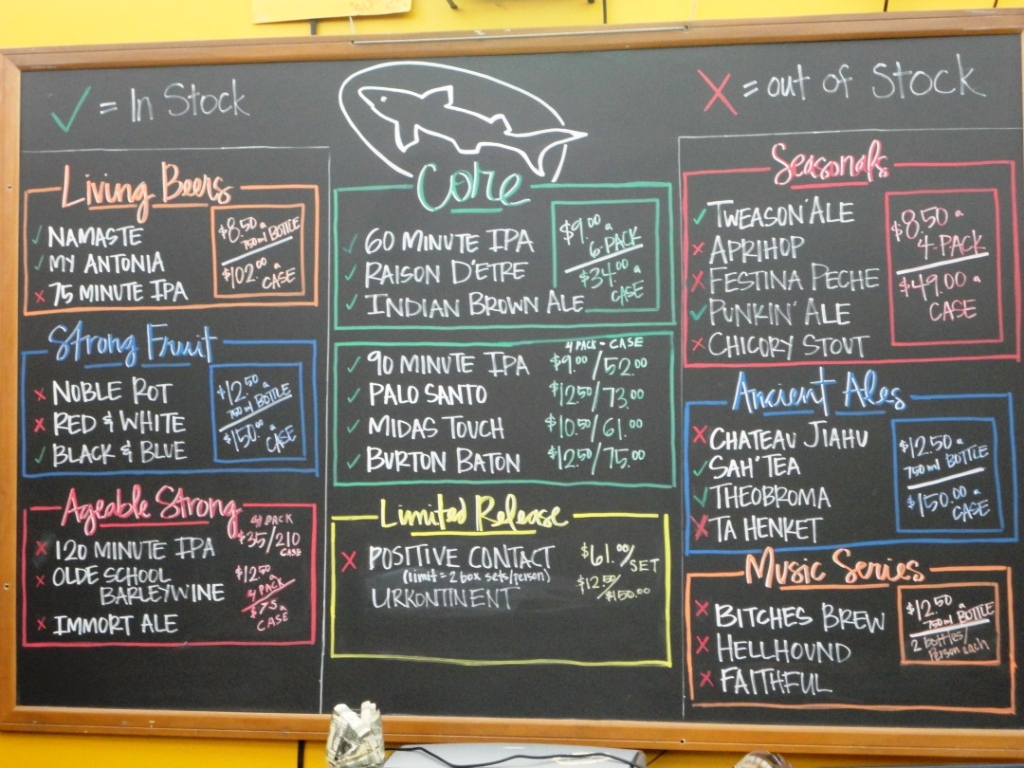 ✓ = In Stock
✗ = out of Stock
Living Beers
✓ NAMASTE
✓ MY ANTONIA
✗ 75 MINUTE IPA
$8.50 a
750 ml BOTTLE
$102.00 a
CASE
Strong Fruit
✗ NOBLE ROT
✗ RED & WHITE
✓ BLACK & BLUE
$12.50 a
750 ml BOTTLE
$150.00 a
CASE
Ageable Strong
✗ 120 MINUTE IPA
✗ OLDE SCHOOL
BARLEYWINE
✗ IMMORT ALE
4 PACK
$35/210
CASE
$12.50
4 PACK
$75 a
CASE
Core
✓ 60 MINUTE IPA
✓ RAISON D'ETRE
✓ INDIAN BROWN ALE
$9.00 a
6 PACK
$34.00 a
CASE
4 PACK - CASE
✓ 90 MINUTE IPA $9.00/52.00
✓ PALO SANTO $12.50/73.00
✓ MIDAS TOUCH $10.50/61.00
✓ BURTON BATON $12.50/75.00
Limited Release
✗ POSITIVE CONTACT $61.00/SET
(limit = 2 box sets/person)
URKONTINENT $12.50/$150.00
Seasonals
✓ TWEASON'ALE
✗ APRIHOP
✗ FESTINA PECHE
✓ PUNKIN' ALE
✗ CHICORY STOUT
$8.50 a
4-PACK
$49.00 a
CASE
Ancient Ales
✗ CHATEAU JIAHU
✓ SAH'TEA
✓ THEOBROMA
✗ TA HENKET
$12.50 a
750 ml BOTTLE
$150.00 a
CASE
Music Series
✗ BITCHES BREW
✗ HELLHOUND
✗ FAITHFUL
$12.50 a
750 ml BOTTLE
2 bottles/
Person each